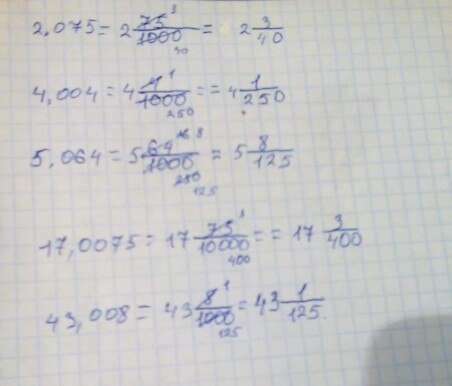 2,075 = 2 75/1000 3 40 = 2 3/40
4,004 = 4 4/1000 1 250 = = 4 1/250
5,064 = 5 64/1000 16 8 250 125 = 5 8/125
17,0075 = 17 75/10000 3 400 = = 17 3/400
43,008 = 43 8/1000 1 125 = 43 1/125